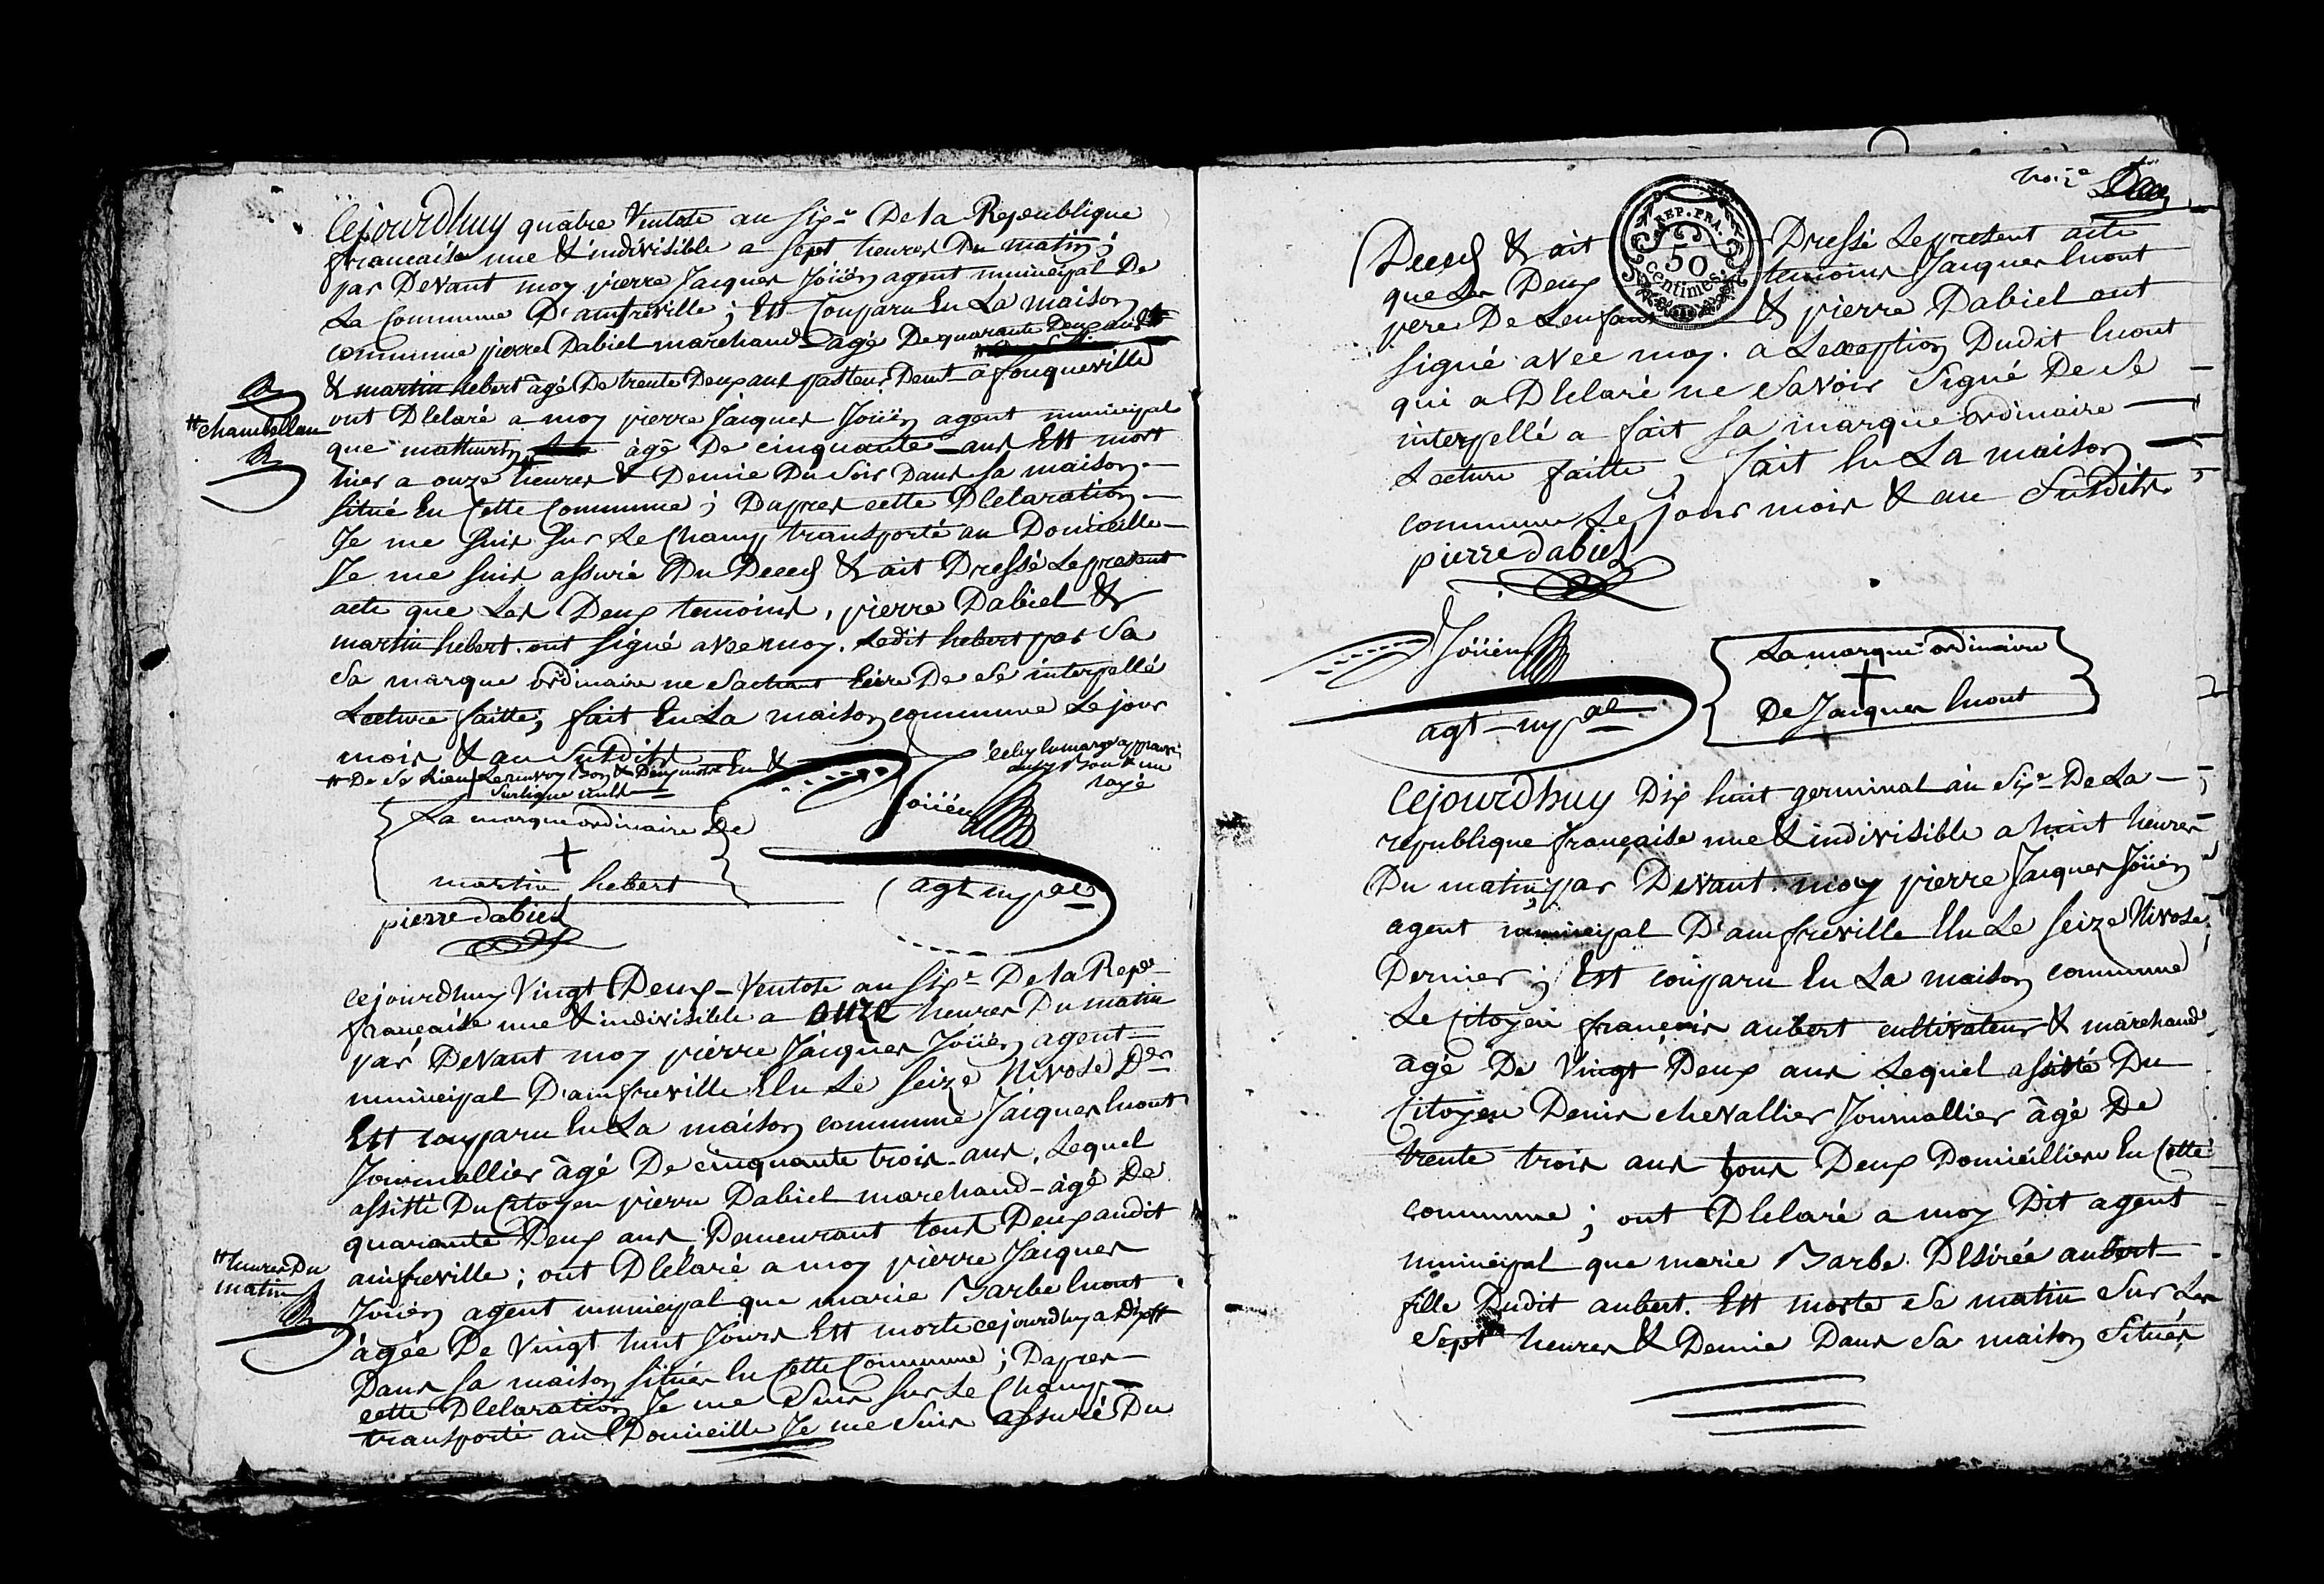 Cejourdhuy quatre Ventose an Six.e De la Republique
francaise une & indivisible a Sept heures Du matin ;
par Devant moy pierre Jacques Joüen agent municipal De
La Commune D'amfreville ; Est Comparu En La maison
commune pierre Dabiel marchand âgé De quarante Deux ans #
& martin hebert âgé De trente Deux ans pasteur Demt a fouqueville
ont Déclaré a moy pierre Jacques Joüen agent municipal
#chambellan
que mathurin âgé De cinquante ans Est mort
hier a onze heures & Demie Du Soir Dans sa maison
Situé En Cette Commune ; Dapres cette Déclaration
Je me suis sur Le Champ transporté au Domicille
Je me suis assuré Du Deces & ait Dressé Le present
acte que Les Deux temoins, pierre Dabiel &
martin hebert ont signé avec moy. Ledit hebert par Sa
Sa marque ordinaire ne Sachant Ecrire De Se interpellé
Lecture faitte ; fait En La maison commune Le jour
mois & an Susdits
# De Se Lieu Le renvoy Bon & Deux mots En &
Surligne nuls
celuy En marge approuvé
aussy Bon & un
rayé
La marque ordinaire De
+
martin hebert
Joüen
agt mpal
pierre dabiel
cejourdhuy Vingt Deux Ventose an Six.e De la Repe
française une & indivisible a onze heures Du matin
par Devant moy pierre Jacques Joüen agent
municipal D'amfreville Elu Le Seize Nivose Der
Est comparu En La maison commune Jacques huont
Journallier âgé De cinquante trois ans, Lequel
assisté Du Citoyen pierre Dabiel marchand âgé De
quarante Deux ans Demeurant tous Deux audit
amfreville ; ont Déclaré a moy pierre Jacques
#heures Du
matin
Joüen agent municipal que marie Barbe huont
âgée De Vingt huit Jours Est morte cejourdhuy a Dix #
Dans sa maison située En Cette Commune ; Dapres
cette Déclaration Je me Suis sur Le Champ
transporté au Domicille Je me Suis assuré Du
troize
Deces & ait Dressé Le present acte
REP. FRA.
50
centimes.
que Les Deux temoins Jacques huont
pere De Lenfant & pierre Dabiel ont
signé avec moy. a Lexception Dudit huont
qui a Déclaré ne Savoir Signé De Se
interpellé a fait sa marque ordinaire
Lecture faitte ; fait En La maison
commune Le jour mois & an Susdits
pierre dabiel
Joüen
agt mpal
La marque ordinaire
+
De Jacques huont
Cejourdhuy Dix huit germinal an Six.e De La
republique française une & indivisible a huit heures
Du matin ; par Devant moy pierre Jacques Joüen
agent municipal D'amfreville Elu Le Seize Nivose
Dernier ; Est comparu En La maison commune
Le Citoyen françois aubert cultivateur & marchand
âgé De Vingt Deux ans Lequel assisté Du
Citoyen Denis chevallier Journallier âgé De
trente trois ans tous Deux Domicilliers En Cette
commune ; ont Déclaré a moy Dit agent
municipal que marie Barbe Désirée aubert
fille Dudit aubert. Est morte Se matin Sur Les
Sept heures & Demie Dans Sa maison Située